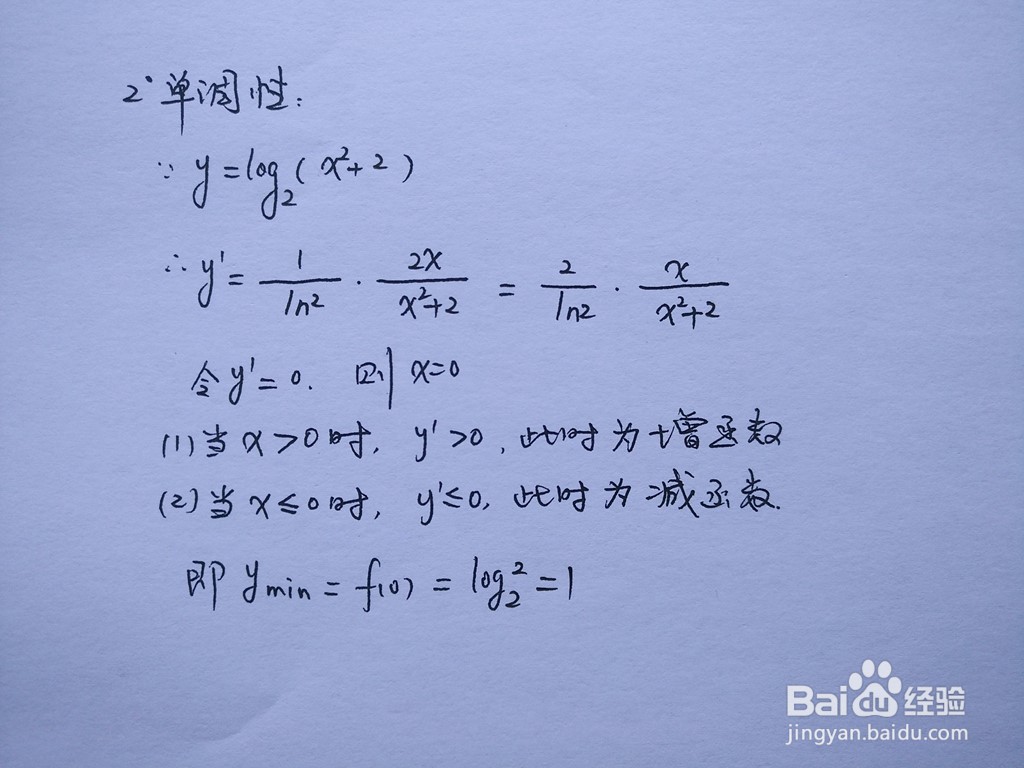 2° 单调性:
∵ y = log₂(x²+2)
∴ y' = 1/ln2 · 2x/(x²+2) = 2/ln2 · x/(x²+2)
令 y' = 0. 则 x=0
(1) 当 x > 0 时, y' > 0, 此时为增函数
(2) 当 x ≤ 0 时, y' ≤ 0, 此时为减函数.
即 ymin = f(0) = log₂² = 1
Bai du 经验
jingyan.baidu.com